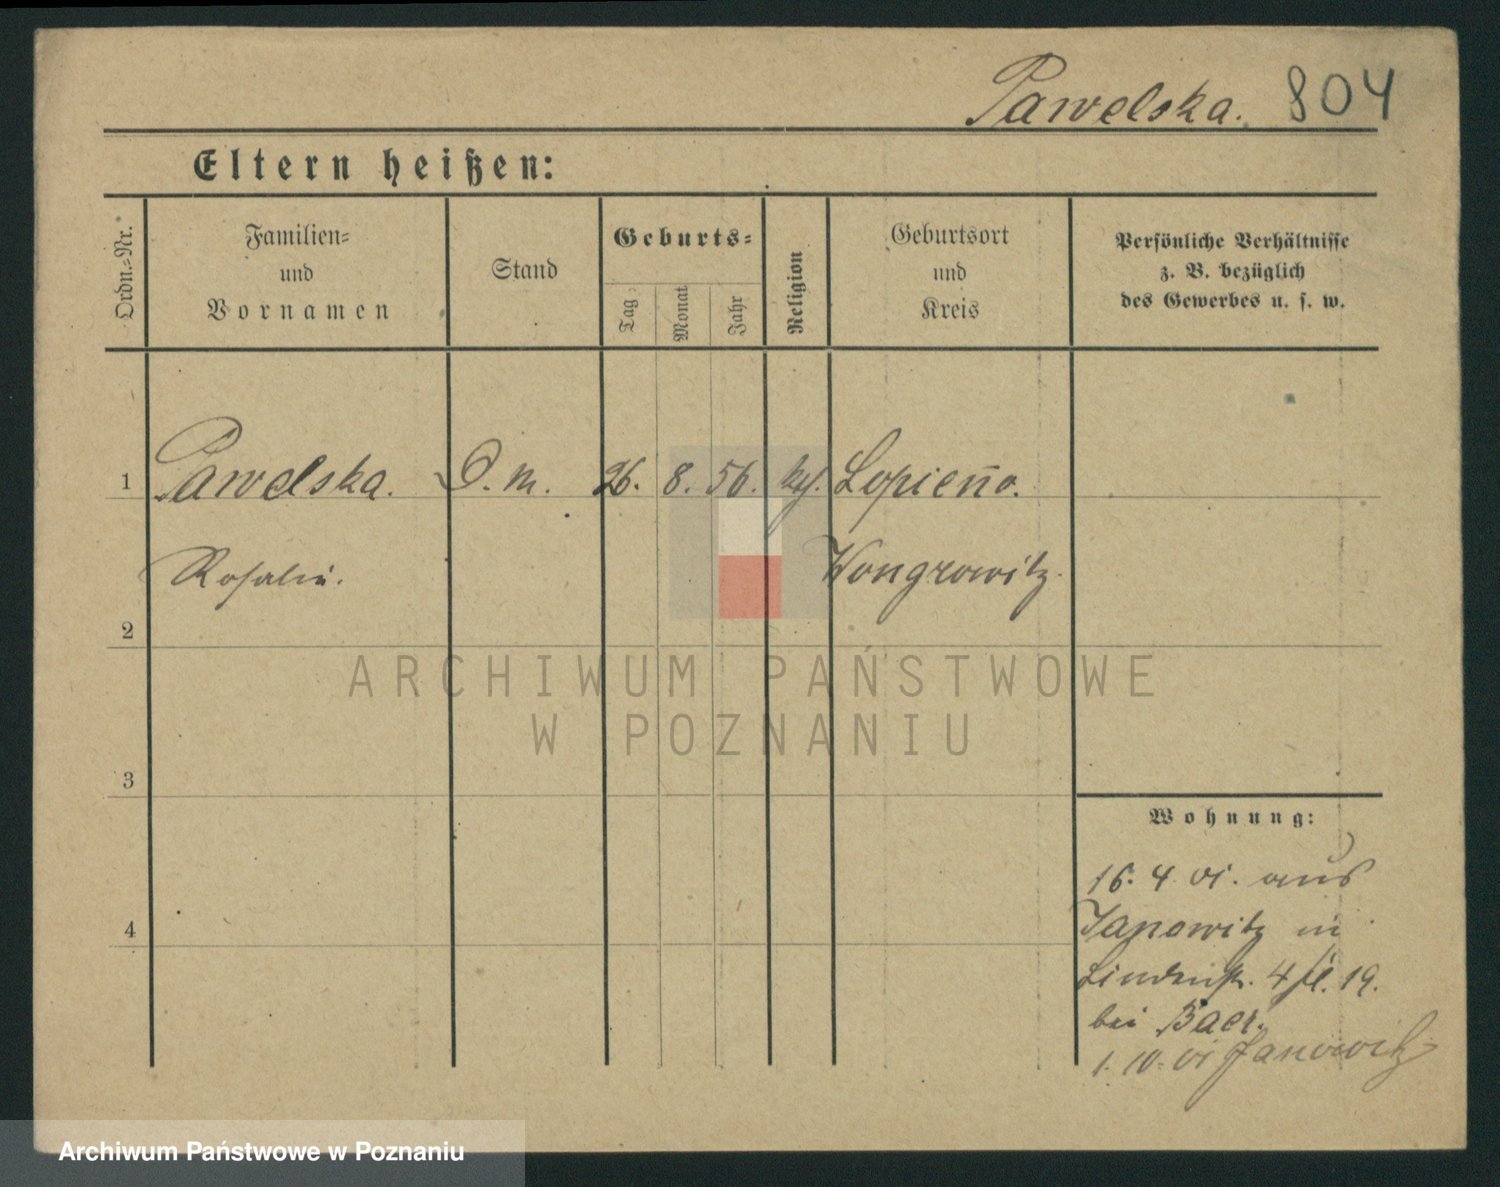 Pawelska. 804
Eltern heißen:
Ordn.=Nr.
Familien=
und
Vornamen
Stand
Geburts=
Tag
Monat
Jahr
Religion
Geburtsort
und
Kreis
Persönliche Verhältnisse
z. B. bezüglich
des Gewerbes u. s. w.
1 Pawelska. D. m. 26. 8. 56. Lopieno.
Rosalie. Wongrowitz.
2
3
4
Wohnung:
16. 4. 01. aus
Janowitz in
Lindenstr. 4 19.
bei Baer.
1. 10. 01 Janowitz
ARCHIWUM PAŃSTWOWE
W POZNANIU
Archiwum Państwowe w Poznaniu